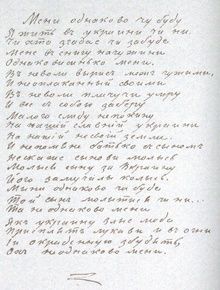 Мени однаково чи буду
Я жить въ украини чи ни.
Чи хто згадае чи забуде
Мене въ снигу на чужини
Однаковисинько мени.
Въ неволи вырисъ межъ чужыми,
И неоплаканый своими
Въ неволи плачучи умру
И все съ собою заберу
Малого слиду не покину
На нашій славній украини
На нашій не своій земли.
И непомъяне батько съ сыномъ
Нескаже сынови молысь
Молысь сыну за вкраину
Його замучыли колысь.
Мени однаково чи буде
Той сынъ молытысь чи ни...
Та не однаково мени
Якъ украину злые люде
Присплять лукави и въ огни
Іи окраденную збудять,
Охъ не однаково мени.